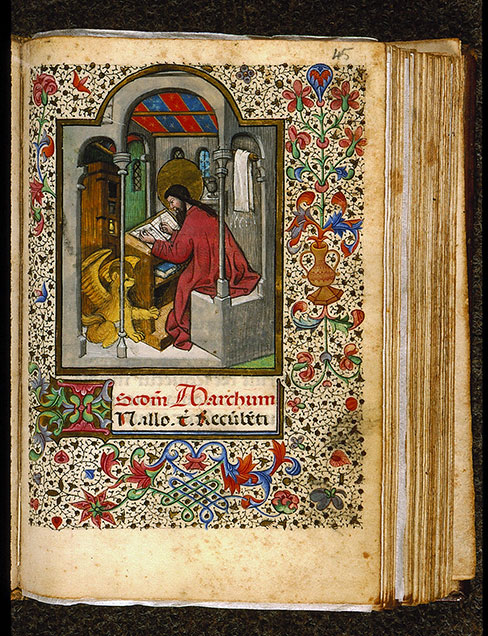 45
Scdm̄ Marchum
IN illo. t̄. Recūbēti